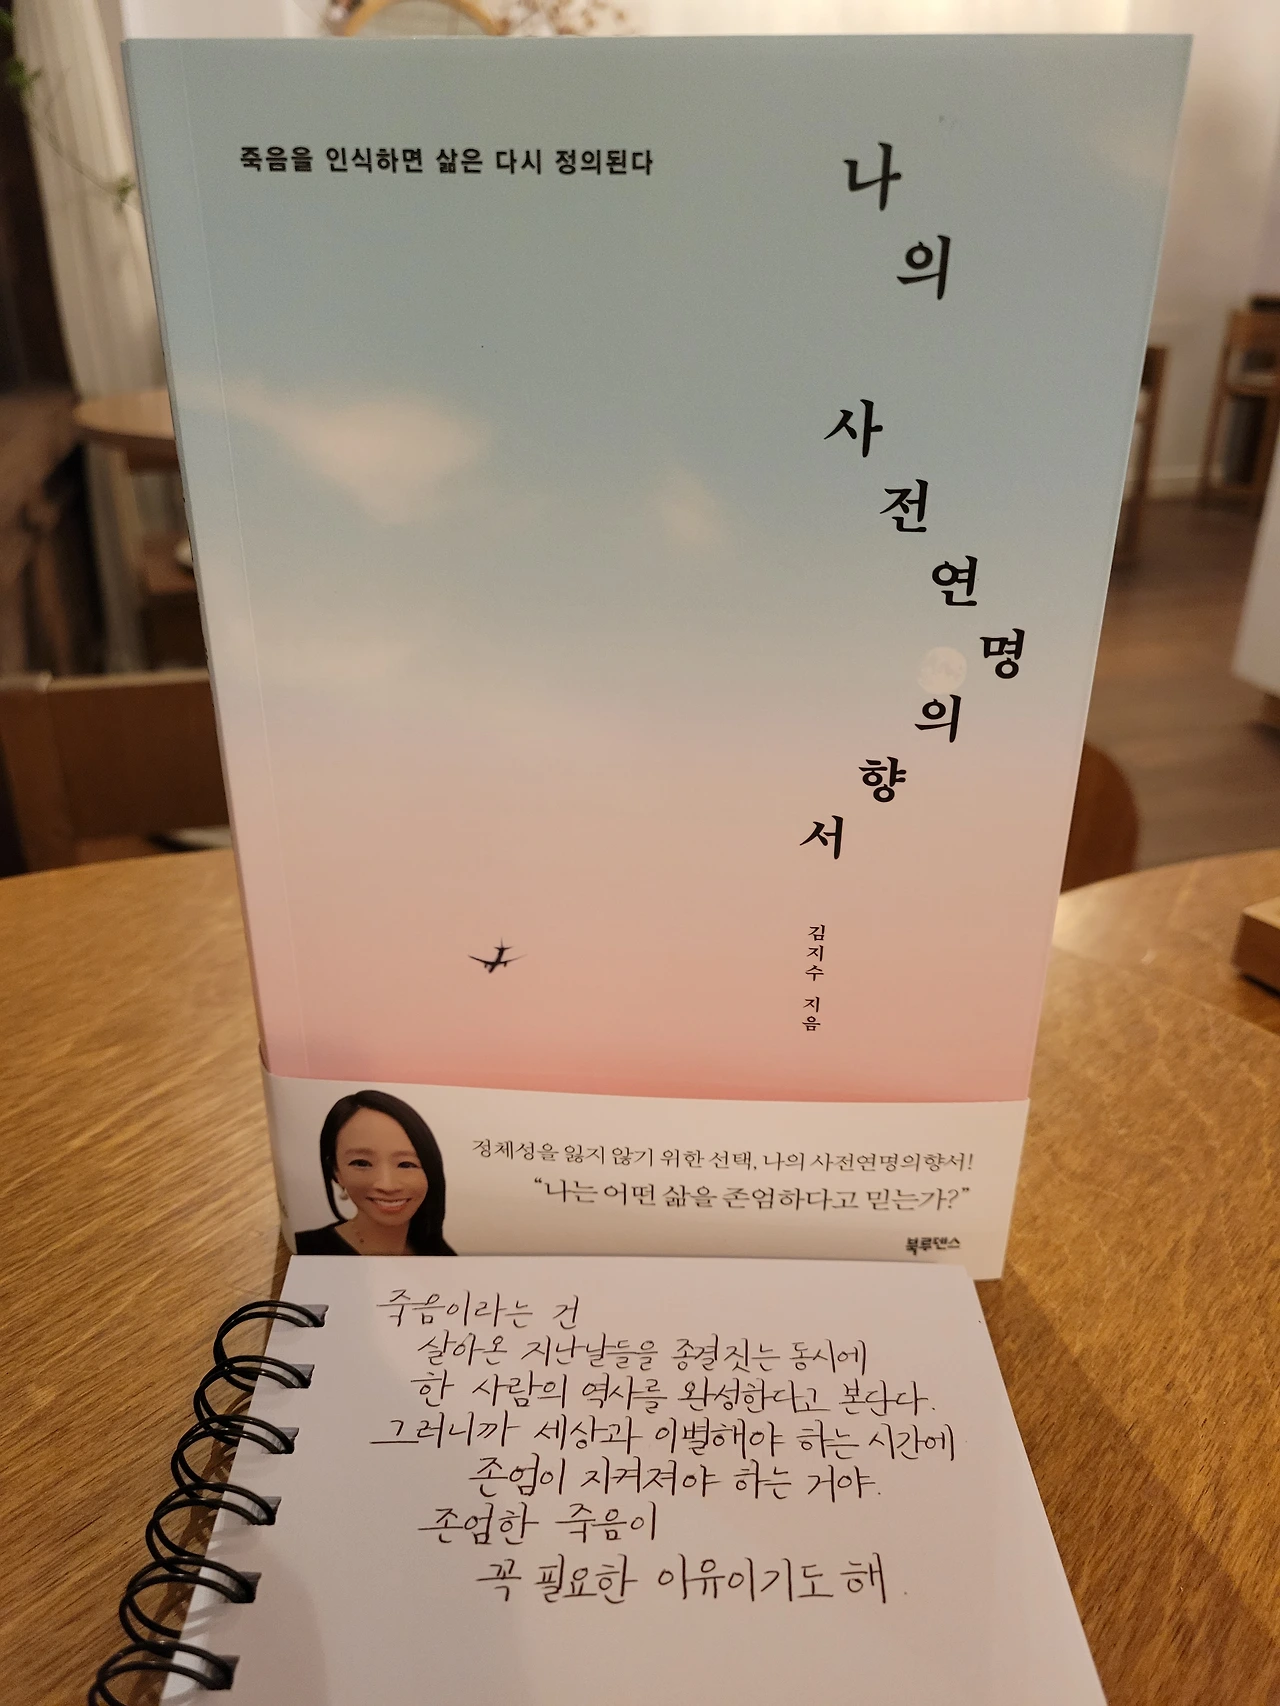 죽음을 인식하면 삶은 다시 정의된다
나의
사전연명의향서
김지수 지음
정체성을 잃지 않기 위한 선택, 나의 사전연명의향서!
“나는 어떤 삶을 존엄하다고 믿는가?”
북루덴스
죽음이라는 건
살아온 지난날들을 종결짓는 동시에
한 사람의 역사를 완성한다고 본단다.
그러니까 세상과 이별해야 하는 시간에
존엄이 지켜져야 하는 거야.
존엄한 죽음이
꼭 필요한 이유이기도 해.